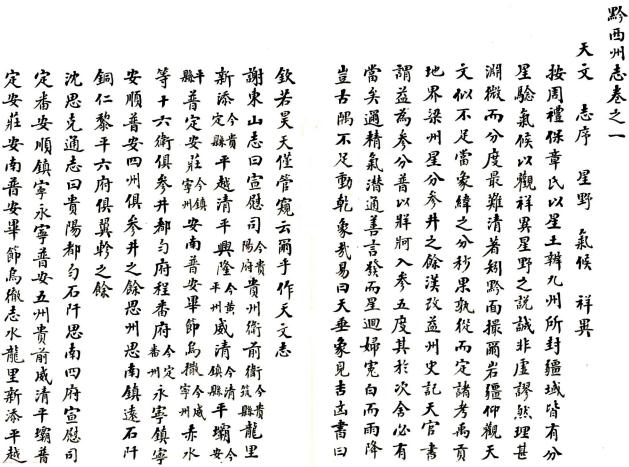 黔西州志卷之一
天文　志序　星野　氣候　祥異
按周禮保章氏以星土辨九州所封疆域皆有分
星驗氣候以觀祥異星野之說誠非虛謬然理甚
淵微而分度最難清著矧黔面操爾岩疆仰觀天
文似不足當象緯之分秒果孰從而定諸考禹貢
地界梁州星分參井之餘漢改益州史記天官書
謂益為參分普以牂牁入參五度其於次舍必有
當矣邇精氣潛通善言發而星迴婦寃白而雨降
豈古隅不足動乾象哉易曰天垂象見吉凶書曰
欽若昊天僅管窺云爾乎作天文志
謝東山志曰宣慰司今貴陽府貴州衛前衛今貴筑縣龍里
新添今貴定縣平越清平興隆今黃平州威清今清鎮縣平壩今安
平縣普定安莊今鎮寧州安南普安畢節烏撒今威寧州赤水
等十六衛俱參井都勻府程番府今定番州永寧鎮寧
安順普安四州俱參井之餘思州思南鎮遠石阡
銅仁黎平六府俱翼軫之餘
沈思充通志曰貴陽都勻石阡思南四府宣慰司
定番安順鎮寧永寧普安五州貴前威清平壩普
定安莊安南普安畢節烏撒赤水龍里新添平越